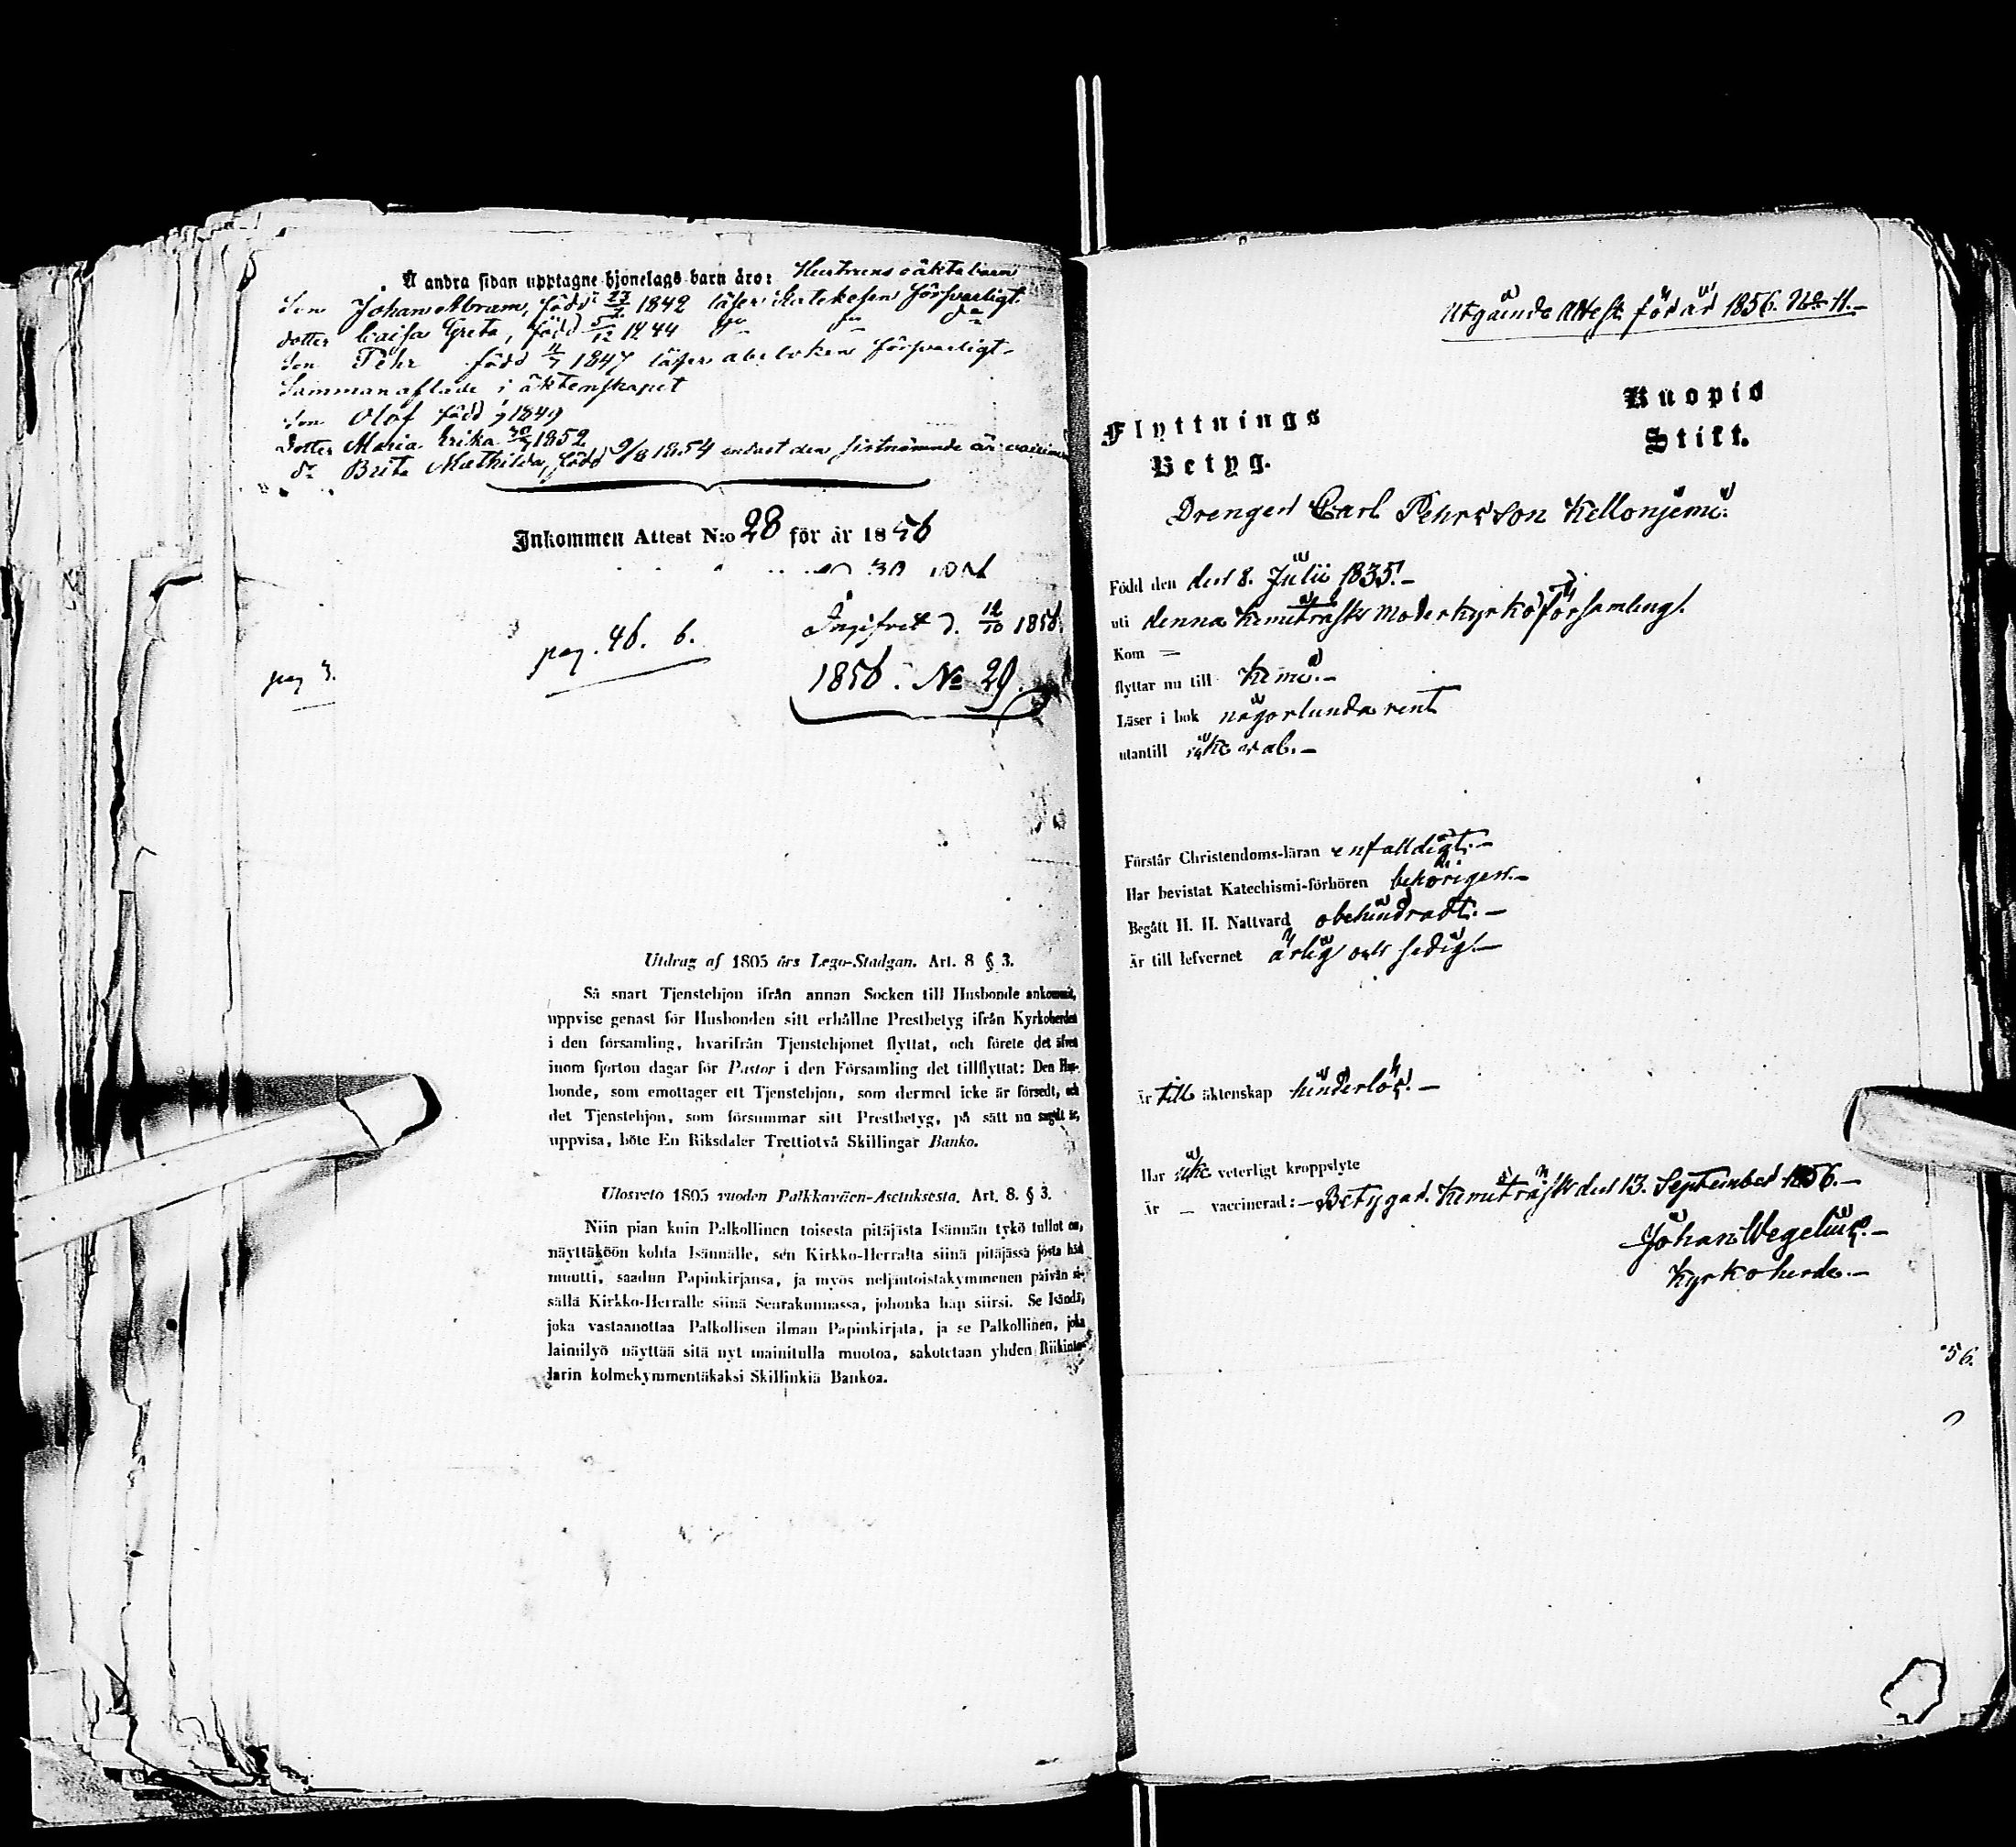 Å andra sidan upptagne hjonelags barn äro: Hustruns oäkta barn
Son Johan Abram, född 1842 läser i katekesen försvarligt
dotter Caisa Greta, född 5/12 1844 do do do
Son Pehr född 4/7 1847 läser abcboken försvarligt
Sammanaflade i äktenskapet
Son Olof född 1849
dotter Maria Erika 1852
do Brita Mathilda, född 9/8 1854 endast den sistnämnde är
Inkommen Attest N:o 28 för år 1856
Ingifvet d. 12/10 1856
pag. 46. b.
pag 3.
1856. No 29.
Utdrag af 1805 års Lego-Stadgan. Art. 8 § 3.
Så snart Tjenstehjon ifrån annan Socken till Husbonde ankommit,
uppvise genast för Husbonden sitt erhållne Prestbetyg ifrån Kyrkoherden
i den församling, hvarifrån Tjenstehjonet flyttat, och förete det äfven
inom fjorton dagar för Pastor i den Församling det tillflyttat: Den Hus-
bonde, som emottager ett Tjenstehjon, som dermed icke är försedt, och
det Tjenstehjon, som försummar sitt Prestbetyg, på sätt nu sagdt är,
uppvisa, böte En Riksdaler Trettiotvå Skillingar Banko.
Ulosveto 1805 vuoden Palkkaväen-Asetuksesta. Art. 8. § 3.
Niin pian kuin Palkollinen toisesta pitäjästa Isännän tykö tullut on,
näyttäköön kohta Isännälle, sen Kirkko-Herralta siinä pitäjässä josta hän
muutti, saadun Papinkirjansa, ja myös neljäntoistakymmenen päivän si-
sällä Kirkko-Herralle siinä Seurakunnassa, johonka hän siirsi. Se Isändä,
joka vastaanottaa Palkollisen ilman Papinkirjata, ja se Palkollinen, joka
laimilyö näyttää sitä nyt mainitulla muotoa, sakotetaan yhden Riikinta-
larin kolmekymmentäkaksi Skillinkiä Bankoa.
Utgående Attest för år 1856. No 11.-
Flyttnings
Betyg.
Kuopio
Stift.
Drengen Carl Pehrsson Kellonjemi.
Född den den 8. Julii 1835.-
uti denna Kemiträsks Moderkyrkoförsamling.
Kom =
flyttar nu till Kemi.-
Läser i bok någorlunda rent
utantill icke val.-
Förstår Christendoms-läran enfalldigt.-
Har bevistat Katechismi-förhören behörigen.-
Begått H. H. Nattvard obehindradt.-
Är till lefvernet ärlig och sedig.-
Är till äktenskap hinderlös.-
Har icke veterligt kroppslyte
Är - vaccinerad:- Betygar. Kemiträsk den 13. September 1856.-
Johan Wegelius.-
Kyrkoherde.-
56.